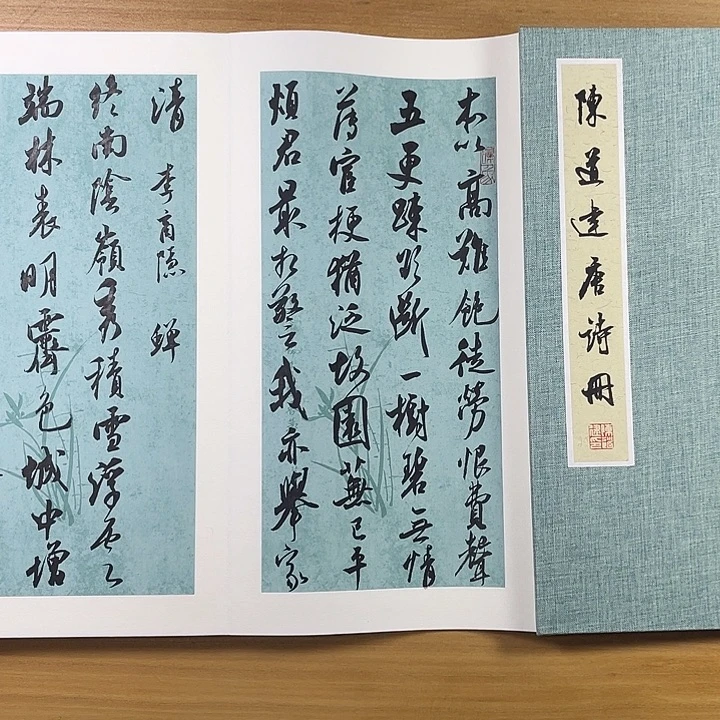 陳道建唐詩冊
本以高難飽徒勞恨費聲
五更疎欲斷一樹碧無情
薄官梗猶泛故園蕪已平
煩君最相警我亦舉家
清 李商隱 蟬
終南陰嶺秀積雪浮雲
端林表明霽色城中增